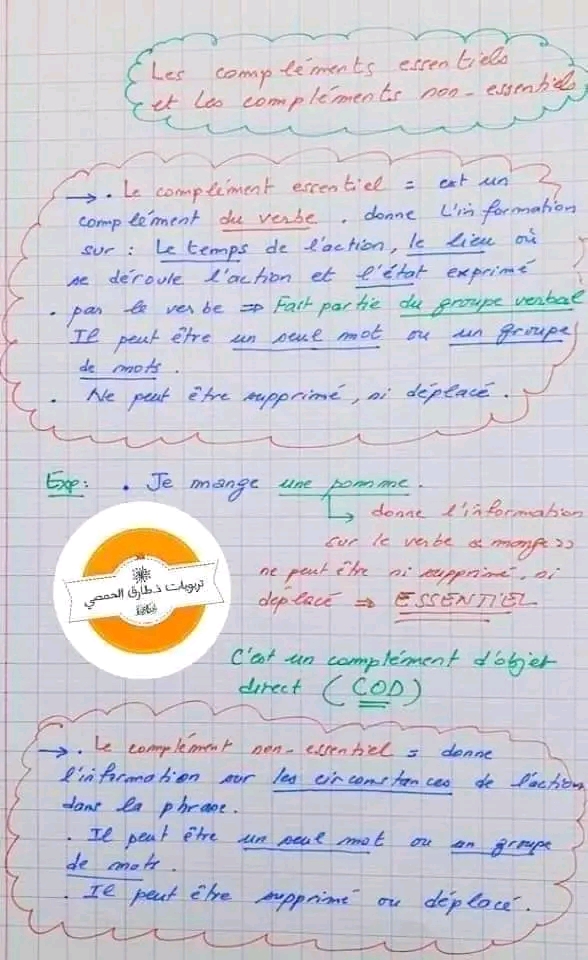 Les compléments essentiels
et les compléments non-essentiels
→ . Le complément essentiel = est un
complément du verbe . donne l'information
sur : Le temps de l'action, le lieu où
se déroule l'action et l'état exprimé
. par le verbe ⇒ Fait partie du groupe verbal
Il peut être un seul mot ou un groupe
de mots.
. Ne peut être supprimé, ni déplacé.
Exp: . Je mange une pomme.
↳ donne l'information
sur le verbe « mange »
ne peut être ni supprimé, ni
déplacé ⇒ ESSENTIEL
تربويات ذ.طارق الحمصي
C'est un complément d'objet
direct (COD)
→ . Le complément non-essentiel = donne
l'information sur les circonstances de l'action
dans la phrase.
. Il peut être un seul mot ou un groupe
de mots.
. Il peut être supprimé ou déplacé.